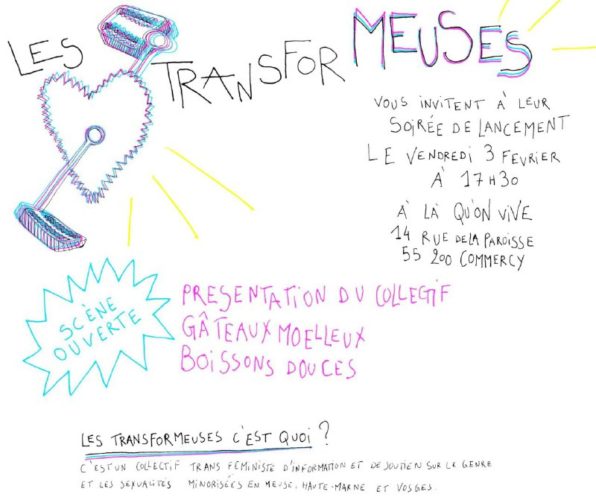 LES TRANSFORMEUSES
VOUS INVITENT À LEUR
SOIRÉE DE LANCEMENT
LE VENDREDI 3 FÉVRIER
À 17H30
À LÀ QU'ON VIVE
14 RUE DE LA PAROISSE
55 200 COMMERCY
SCÈNE
OUVERTE
PRESENTATION DU COLLECTIF
GÂTEAUX MOELLEUX
BOISSONS DOUCES
LES TRANSFORMEUSES C'EST QUOI ?
C'EST UN COLLECTIF TRANS FÉMINISTE D'INFORMATION ET DE SOUTIEN SUR LE GENRE
ET LES SEXUALITÉS MINORISÉES EN MEUSE, HAUTE-MARNE ET VOSGES.